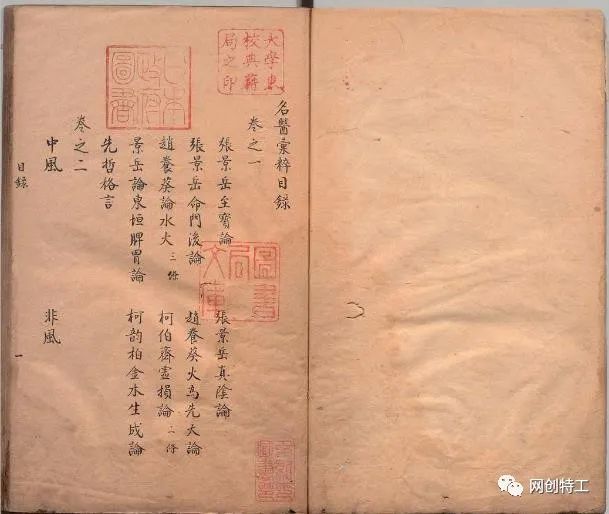 大學東
校典籍
局之印
日本
政府
圖書
名醫彙粹目録
卷之一
張景岳至寶論　張景岳真陰論
張景岳命門後論　趙養葵火為先天論
趙養葵論水火三條　柯伯齋虛損論二條
景岳論東垣脾胃論　柯韵柏金水生成論
先哲格言
卷之二
中風　非風
目録　一
圖書
局
文庫
网创特工